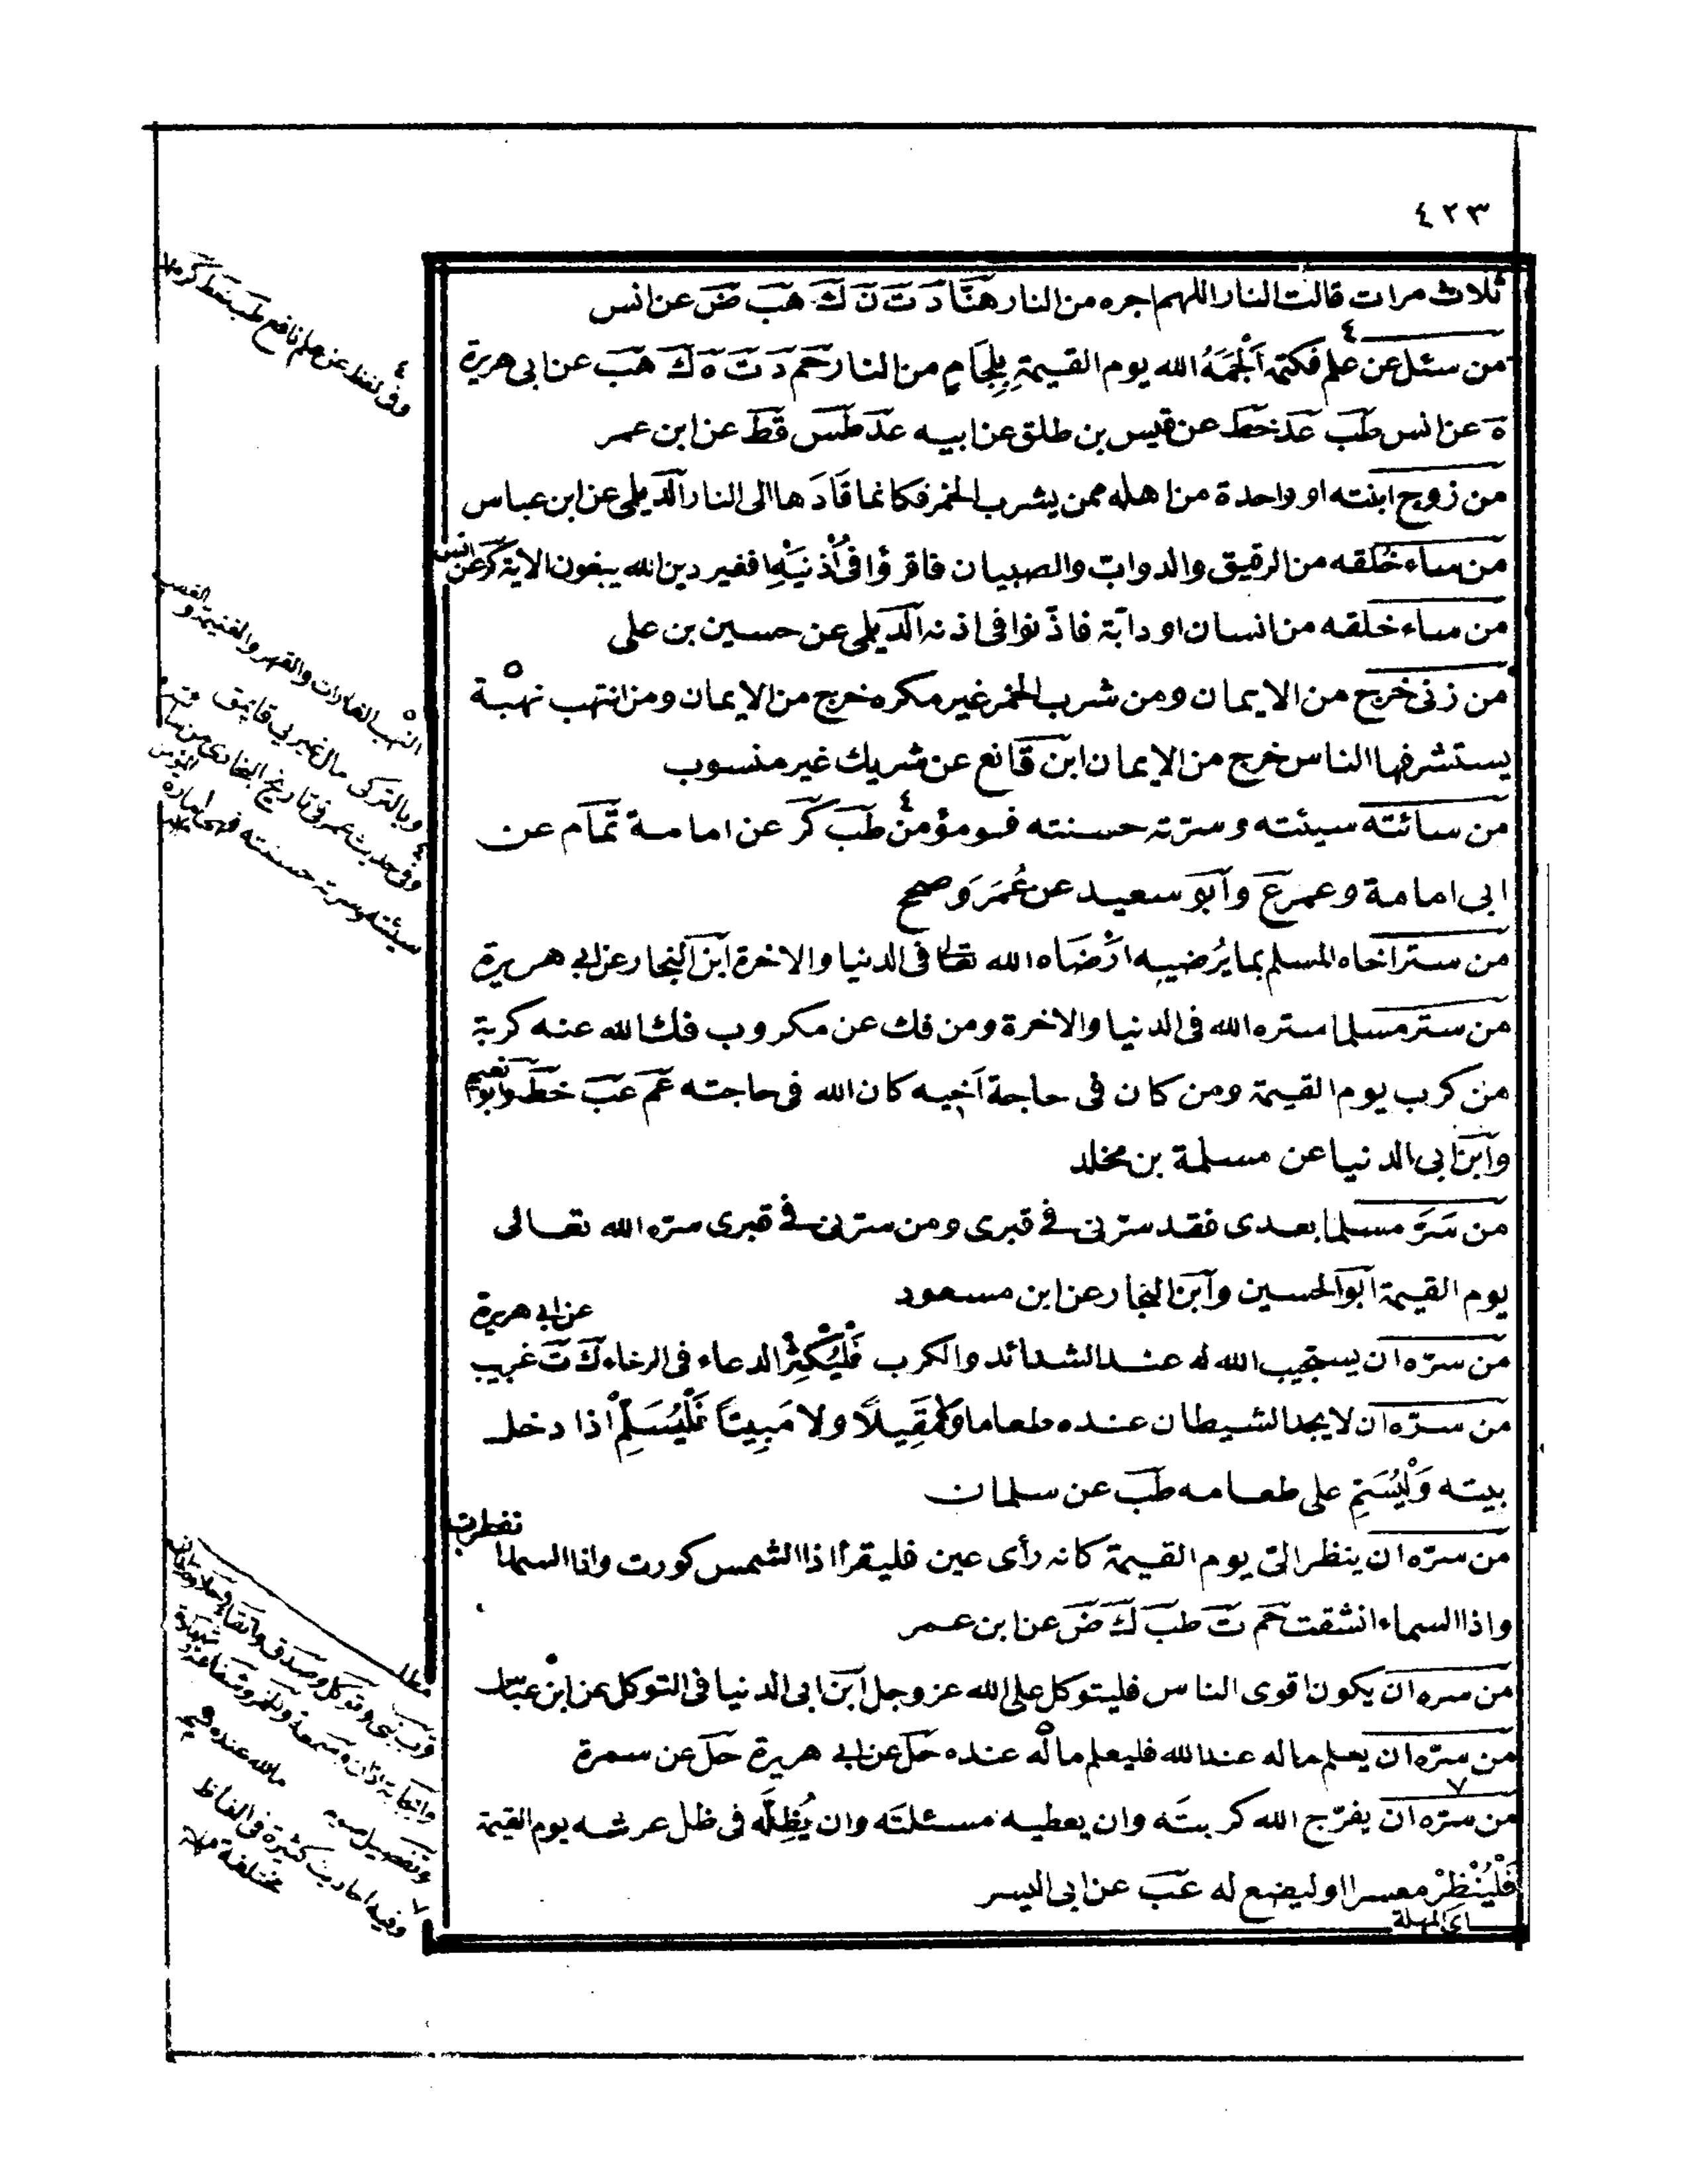 ٤٢٣
ثلاث مرات قالت النار اللهم اجره من النار هناد ت ن ك هب ض عن انس
من سئل عن علم فكتمه اَلْجَمَهُ الله يوم القيمة بِلِجَامٍ من النار حم د ت ه ك هب عن ابى هريرة
ه عن انس طب عد خط عن قيس بن طلق عن ابيه عد طس قط عن ابن عمر
من زوج ابنته او واحدة من اهله ممن يشرب الخمر فكانما قَادَها الى النار الديلمى عن ابن عباس
من ساء خُلقه من الرقيق والدواب والصبيان فاقرؤا فى اُذنَيْهِ افغير دين الله يبغون الاية كر عن انس
من ساء خلقه من انسان او دابّة فاذّنوا فى اذنه الديلمى عن حسين بن على
من زنى خرج من الايمان ومن شرب الخمر غير مكره خرج من الايمان ومن انتهب نهْبة
يستشرفها الناس خرج من الايمان ابن قانع عن شريك غير منسوب
من سائته سيئته وسرّته حسنته فهو مؤمن طب كر عن امامة تمّام عن
ابى امامة وعمر ع وابو سعيد عن عُمَرَ وصح
من ستر اخاه المسلم بما يُرضيه ارْضَاه الله تعالى فى الدنيا والاخرة ابن النجار عن ابى هريرة
من ستر مسلما ستره الله فى الدنيا والاخرة ومن فك عن مكروب فك الله عنه كربة
من كرب يوم القيمة ومن كان فى حاجة اَخيه كان الله فى حاجته عم عب خط وابو نعيم
وابن ابى الدنيا عن مسلمة بن مخلد
من سَرَّ مسلما بعدى فقد سرّنى فى قبرى ومن سرّنى فى قبرى سرّه الله تعالى
يوم القيمة ابو الحسين وابن النجار عن ابن مسعود
من سرّه ان يستجيب الله له عند الشدائد والكرب فَلْيُكْثِرْ الدعاء فى الرخاء ك ت غريب عن ابى هريرة
من سرّه ان لا يجد الشيطان عنده طعاما ولا مَقِيلًا ولا مَبِيتاً فَلْيُسَلِّمْ اذا دخل
بيته وَلْيُسَمِّ على طعامه طب عن سلمان
من سرّه ان ينظر الىّ يوم القيمة كانه رأى عين فليقرأ اذا الشمس كورت واذا السماء انفطرت
واذا السماء انشقت حم ت طب ك ض عن ابن عمر
من سره ان يكون اقوى الناس فليتوكل على الله عز وجل ابن ابى الدنيا فى التوكل عن ابن عبّاس
من سرّه ان يعلم ما له عند الله فليعلم ما لله عنده حل عن ابى هريرة حل عن سمرة
من سرّه ان يفرّج الله كربتَه وان يعطيه مسئلتَه وان يُظِلَّه فى ظل عرشه يوم القيمة
فَلْيُنْظِرْ معسرا او ليضع له عب عن ابى اليسر
اى المهلة
٤ وفى لفظ عن علم نافع طب خط كر
٥ النهب الغارات والقهر والغنيمة و
وبالتركى مال غيرنى قاپمق
٤ وفى حديث عمر فى تاريخ البخارى من ساءته
سيئته وسرته حسنته فهى امارة المؤمن
مطلب
قرب نبى وتوكل وصدق
وتفصيل
ما لله عنده
٧ وفيه احاديث كثيرة فى الفاظ
مختلفة